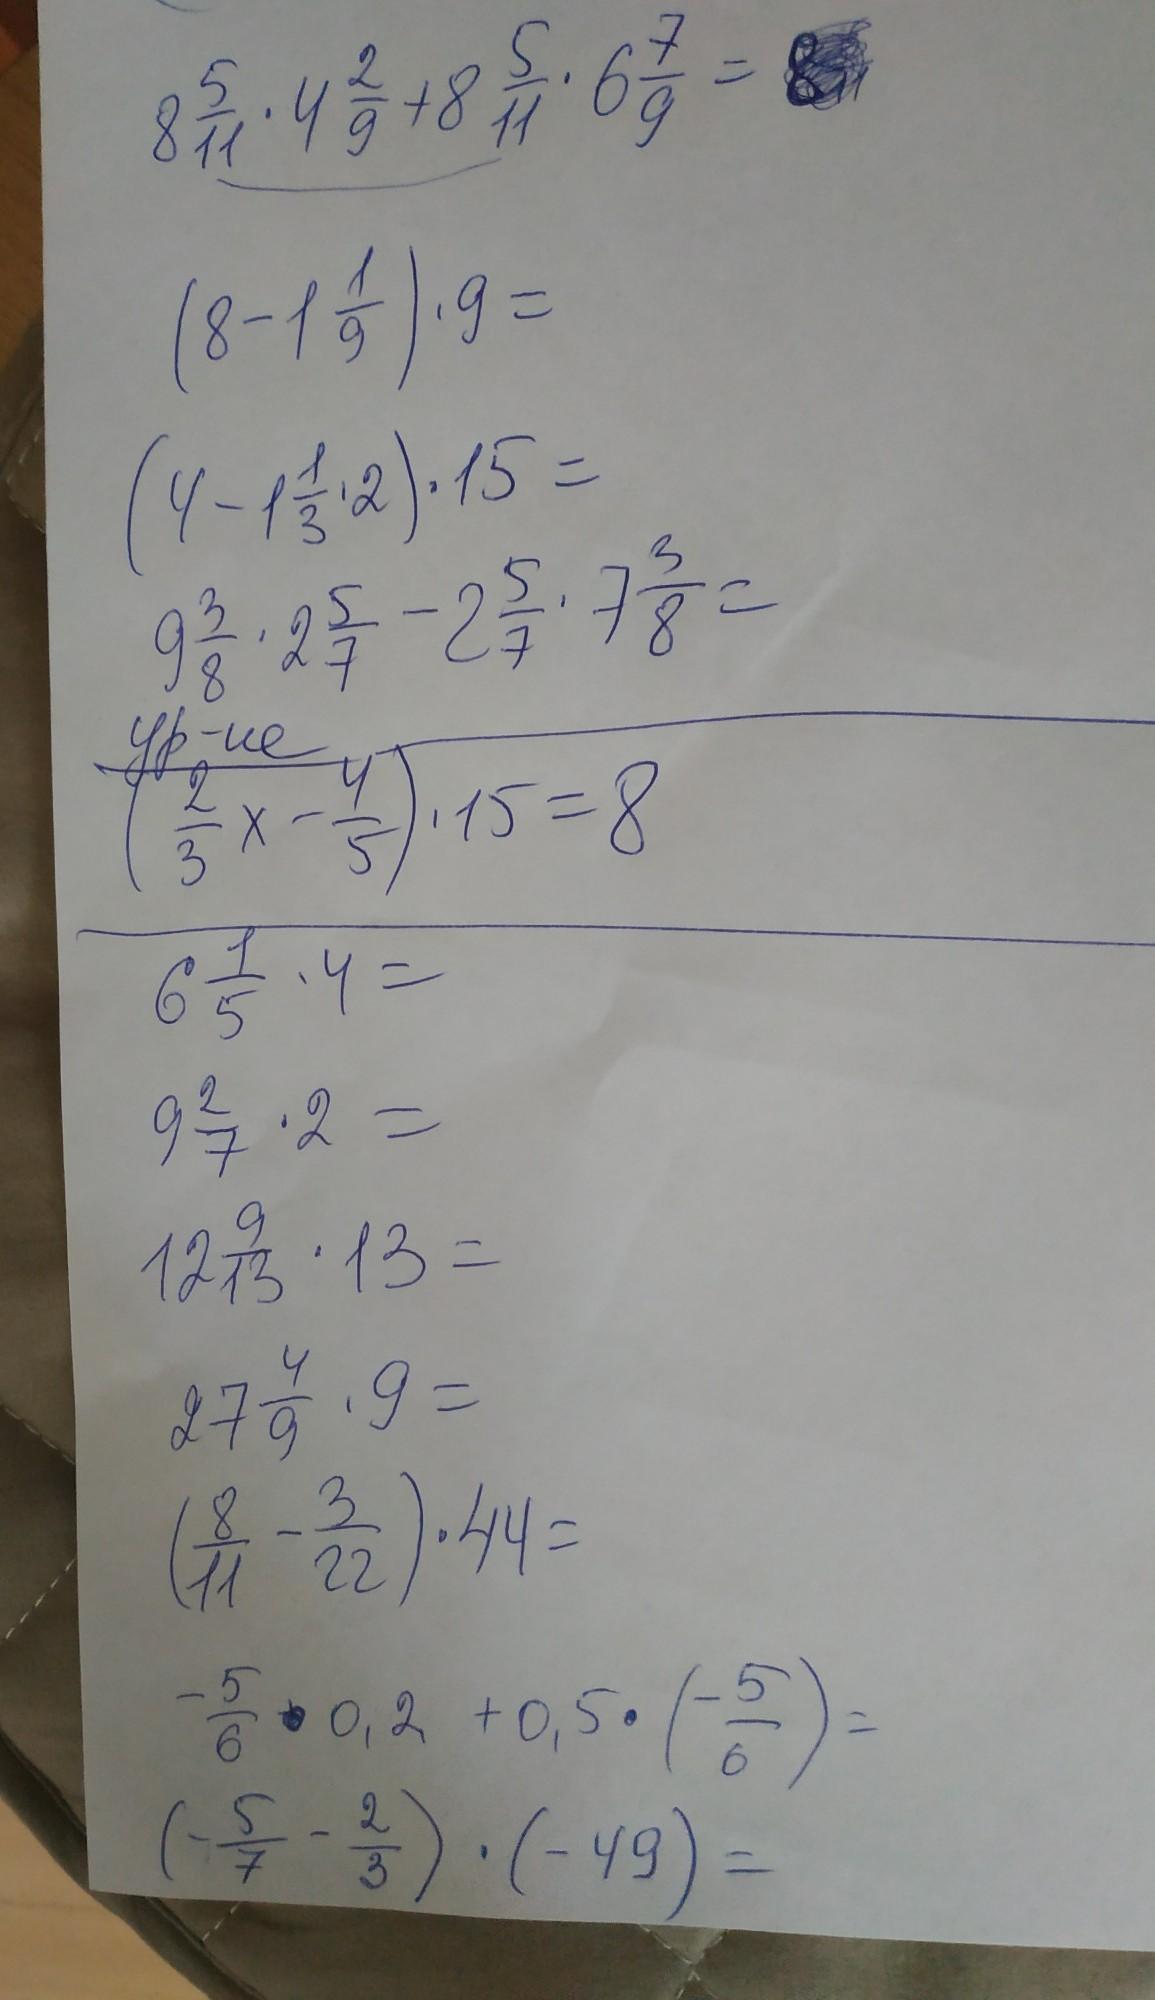 8 5/11 · 4 2/9 + 8 5/11 · 6 7/9 =
(8 - 1 1/9) · 9 =
(4 - 1 1/3 · 2) · 15 =
9 3/8 · 2 5/7 - 2 5/7 · 7 3/8 =
ур-ие
(2/3 x - 4/5) · 15 = 8
6 1/5 · 4 =
9 2/7 · 2 =
12 9/13 · 13 =
27 4/9 · 9 =
(8/11 - 3/22) · 44 =
-5/6 · 0,2 + 0,5 · (-5/6) =
(-5/7 - 2/3) · (-49) =